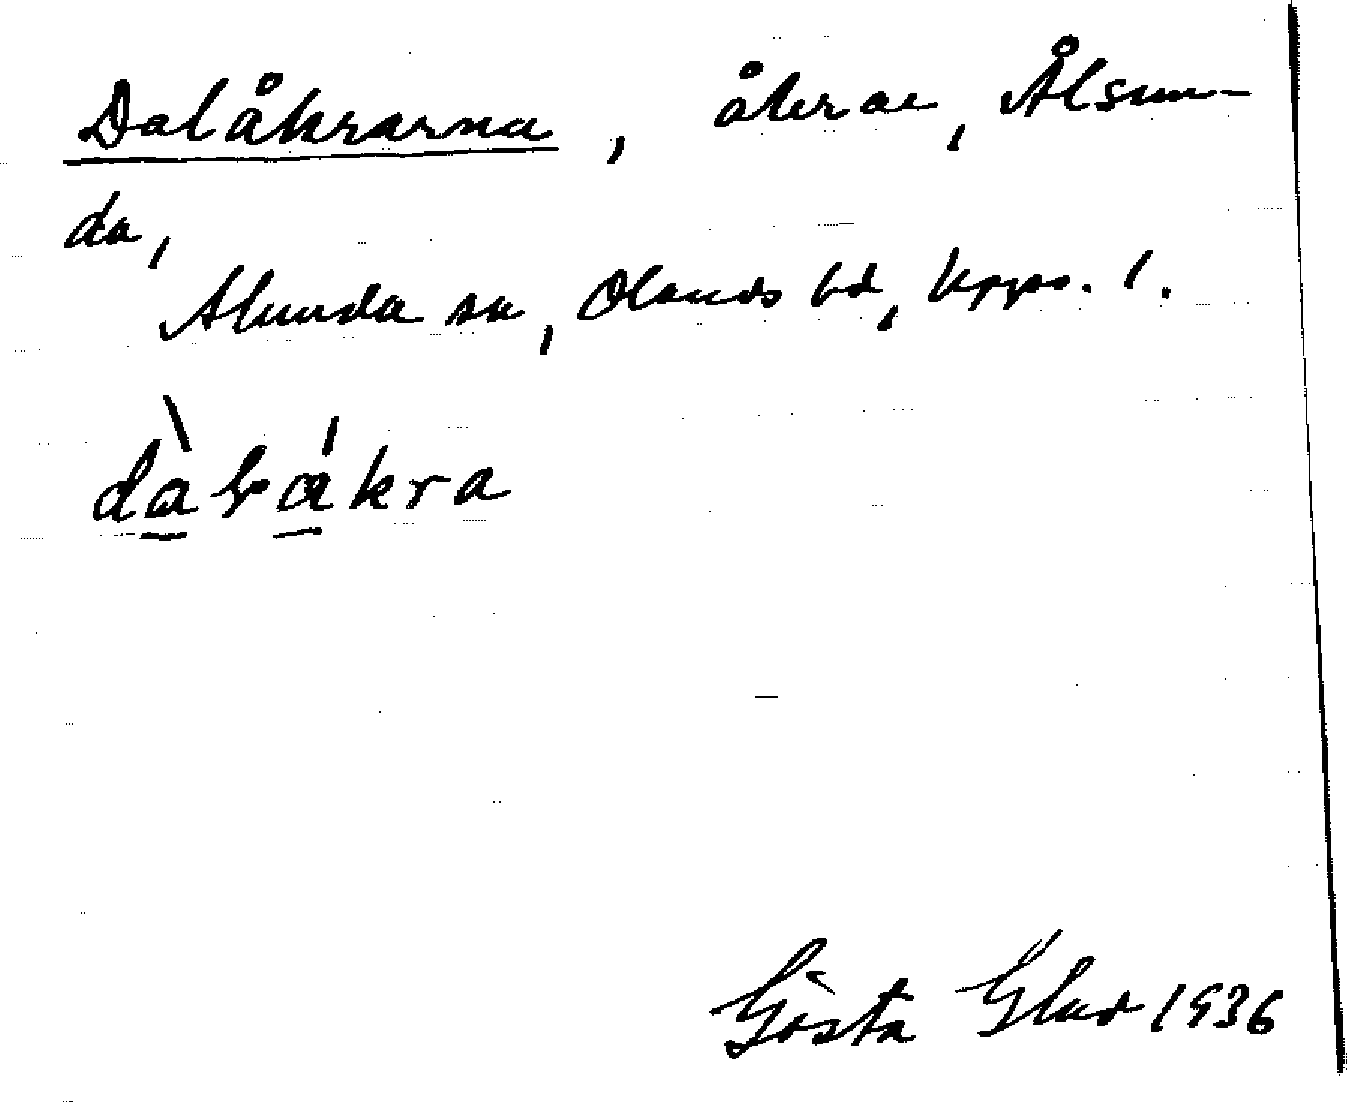 Dalåkrarna, åkrar, Ålsun-
da,
Alunda sn, Olands hd, Upps. l.
Gösta Glad 1936